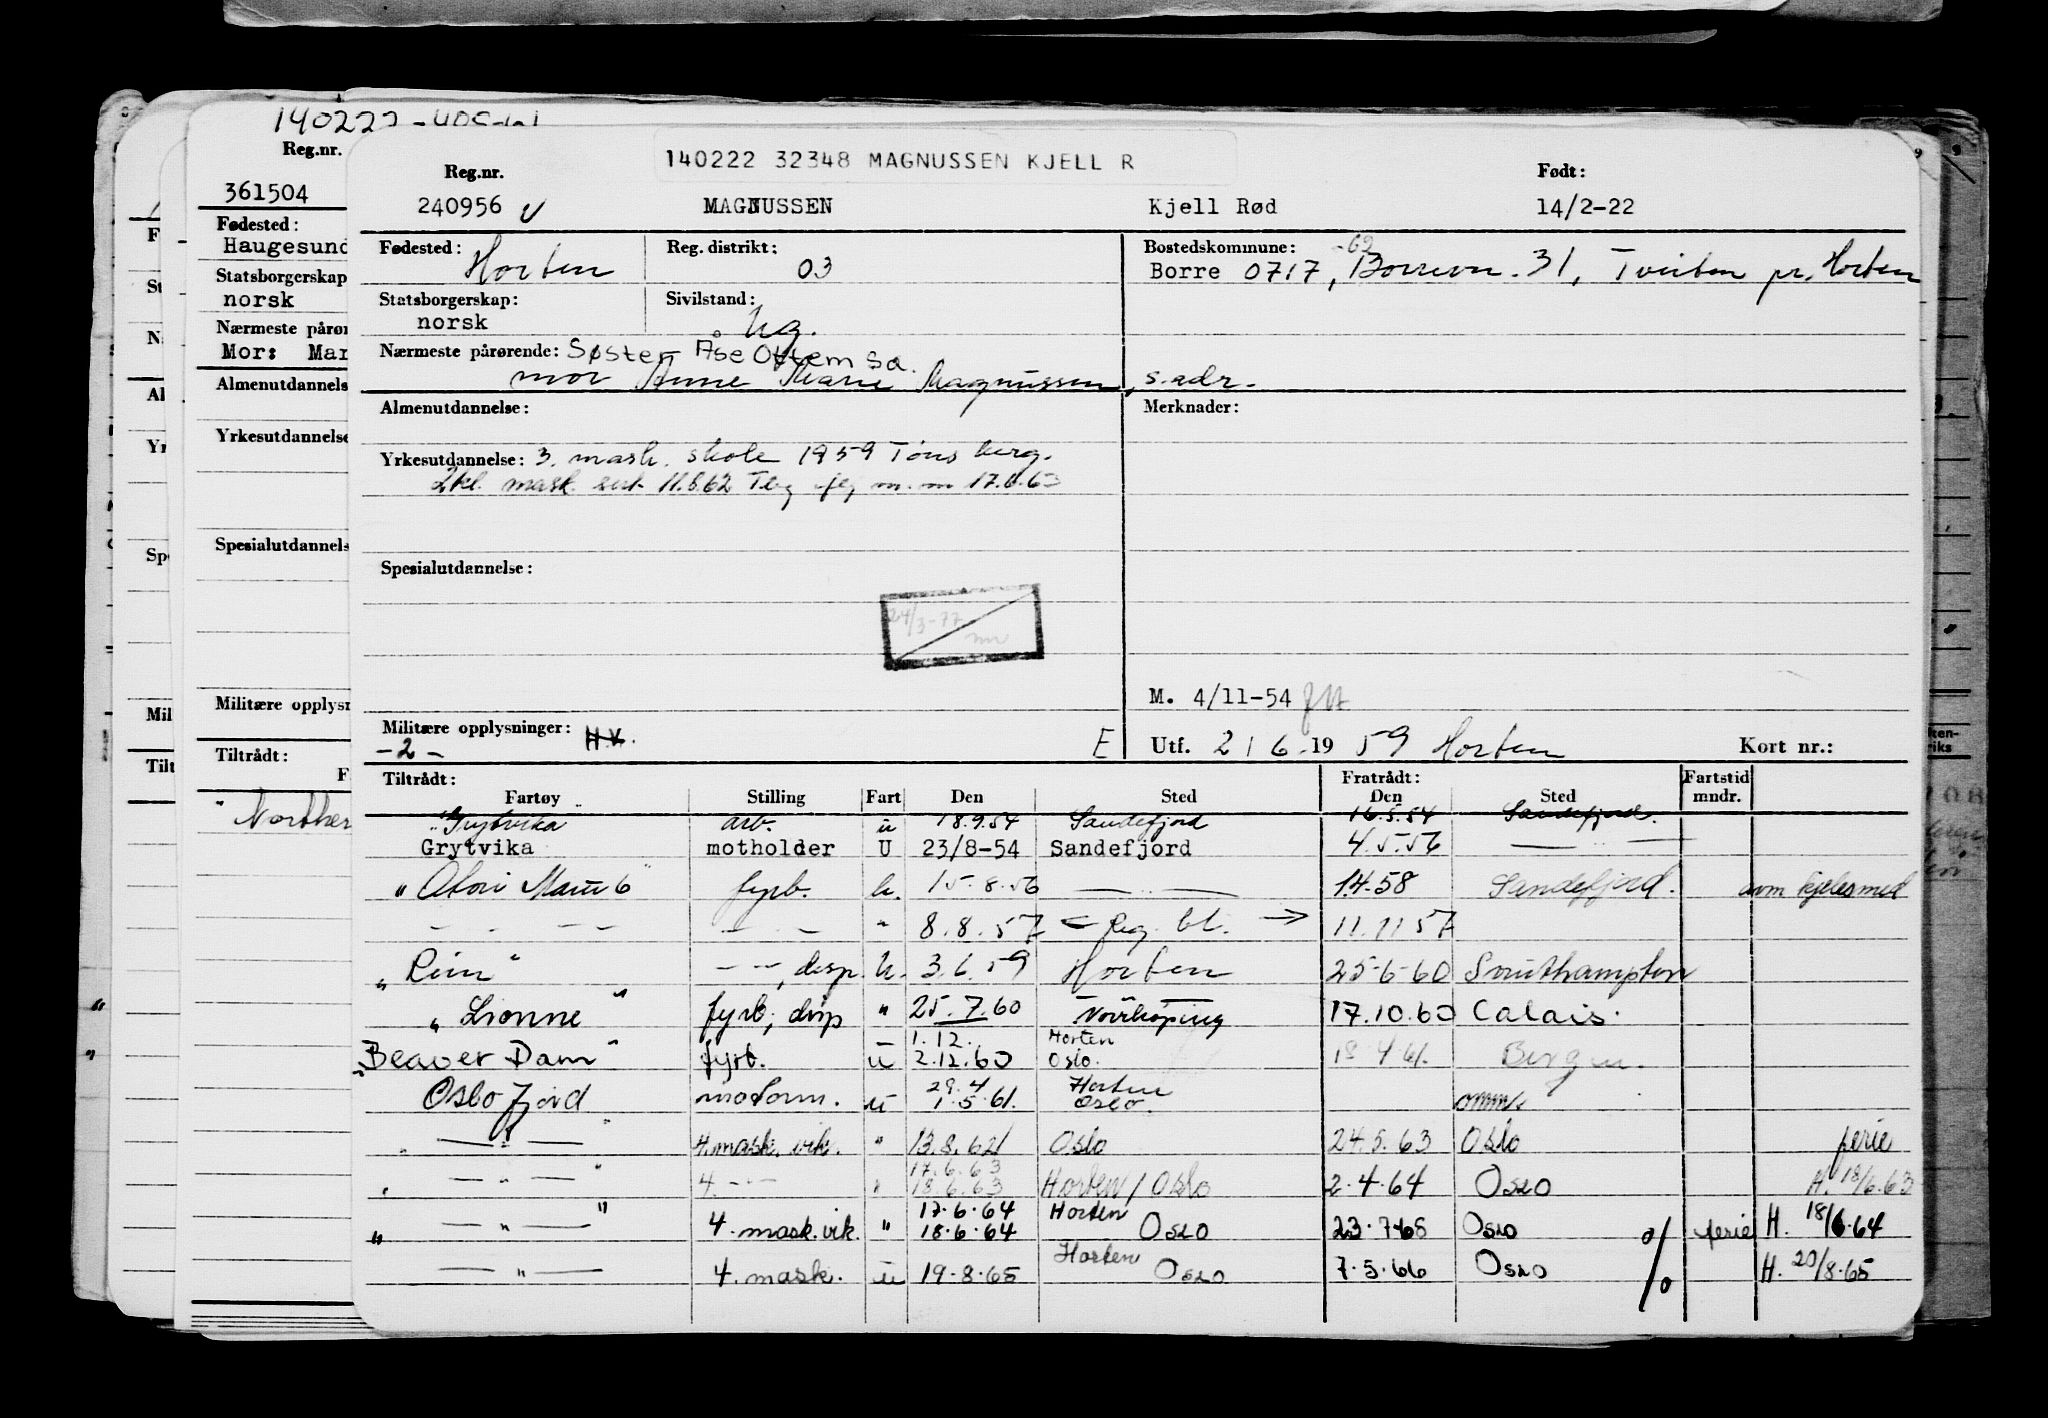 140222
Reg.nr.
361504
Fødested:
Haugesund
Statsborgerskap
norsk
Nærmeste pårør
Mor: Mar
Almenutdannels
Yrkesutdannelse
Spesialutdannels
Militære opplysn
Tiltrådt:
F
"Norther
140222 32348 MAGNUSSEN KJELL R
Reg.nr. Født:
240956 MAGNUSSEN Kjell Rød 14/2-22
Fødested: Horten Reg. distrikt: 03 Bostedskommune:
Borre 0717, Borrevn. 31, Tveiten pr. Horten
Statsborgerskap: norsk Sivilstand: Ug.
Nærmeste pårørende: Søster Åse Ottem sa.
mor Anne Marie Magnussen, s. adr.
Almenutdannelse: Merknader:
Yrkesutdannelse: 3. mask. skole 1959 Tønsberg.
2kl. mask. sert. 11.6.62 Tbg 17.6.63
Spesialutdannelse:
24/3-77
M. 4/11-54
Militære opplysninger: H.V.
-2- E Utf. 2/6-1959 Horten Kort nr.:
Tiltrådt: Fratrådt: Fartstid
Fartøy Stilling Fart Den Sted Den Sted mndr.
"Grytvika" arb. u 18.9.54 Sandefjord 16.5.54 Sandefjord.
Grytvika motholder U 23/8-54 Sandefjord 4.5.56 — " —
" fyrb. u. 15.8.56 — " — 1.4.58 Sandefjord. som kjelesmed
— " — — " — " 8.8.57 <- Reg. bl. -> 11.11 57
"Rim" — " —, disp. u. 3.6.59 Horten 25-6-60 Southampton
"Lionne" fyrb, disp " 25.7.60 Norrköping 17.10.60 Calais.
1.12. Horten
"Beaver Dam" fyrb. u 2.12.60 Oslo. 18.4.61. Bergen.
29.4 Horten
Oslofjord motorm. u 1.5.61. Oslo. omm.
" — " — " 4. mask. vik. " 13.8.62 Oslo 24.5.63 Oslo ferie
17.6.63
" — " — " 4. — " — " 18.6.63 Horten / Oslo 2.4.64 Oslo H. 18/6.63
17.6.64 Horten
" — " — " 4. mask. vik. " 18.6.64 Oslo 23.7.65 Oslo % ferie H. 18/6.64
— " — 4. mask. u 19.8.65 Horten Oslo 7.5.66 Oslo % H. 20/8.65